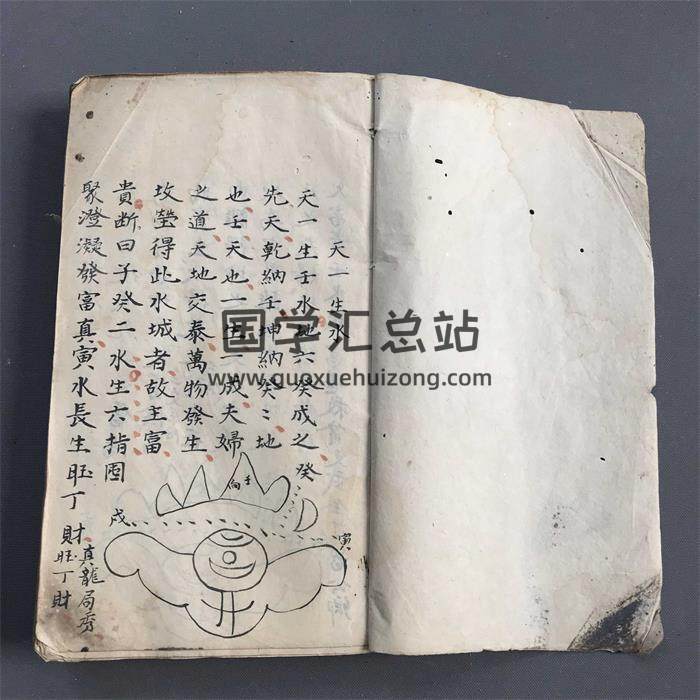 天一生水
天一生壬水地六癸成之癸
先天乾納壬坤納癸〻地
也壬天也一生一成夫婦
之道天地交泰萬物發生
坟瑩得此水城者故主富
貴断曰子癸二水生六指囬
聚澄凝發富真寅水長生旺丁
財真龍局秀
旺丁財
向壬
戌
寅
国学汇总站
www.guoxuehuizong.com